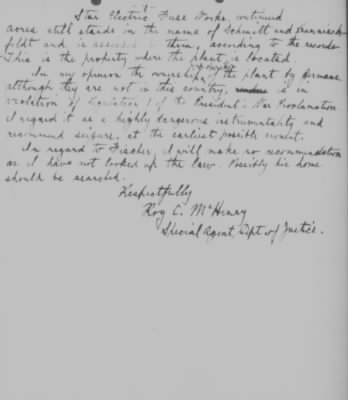 Star Electric Fuse Works, continued
acres still stands in the name of Schmitt and Kannisch-
feldt and is assessed to them, according to the records
This is the property where the plant is located.
In my opinion the ownership of the plant by Germans
although they are not in this country, is in
violation of Regulation 1 of the President's War Proclamation
I regard it as a highly dangerous instrumentality and
recommend seizure, at the earliest possible moment.
In regard to Fischer, I will make no recommendation
as I have not looked up the law. Possibly his home
should be searched.
Respectfully
Roy C. McHenry
Special Agent, Dept of Justice.